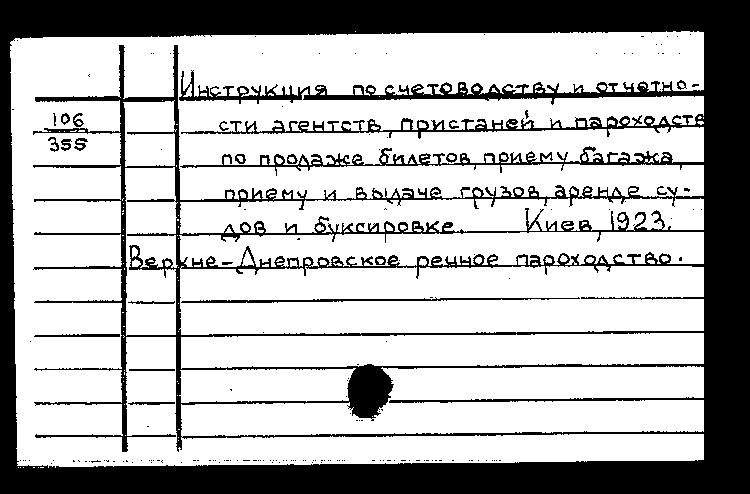 Инструкция по счетоводству и отчетно-
106
355
сти агентств, пристаней и пароходств
по продаже билетов, приему багажа,
приему и выдаче грузов, аренде су-
дов и буксировке. Киев, 1923.
Верхне-Днепровское речное пароходство.